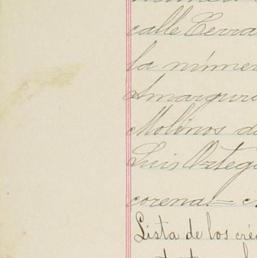 calle Cerra
la númer
Amargur
Molinos de
Luis Ortega
corenal
Lista de los cré